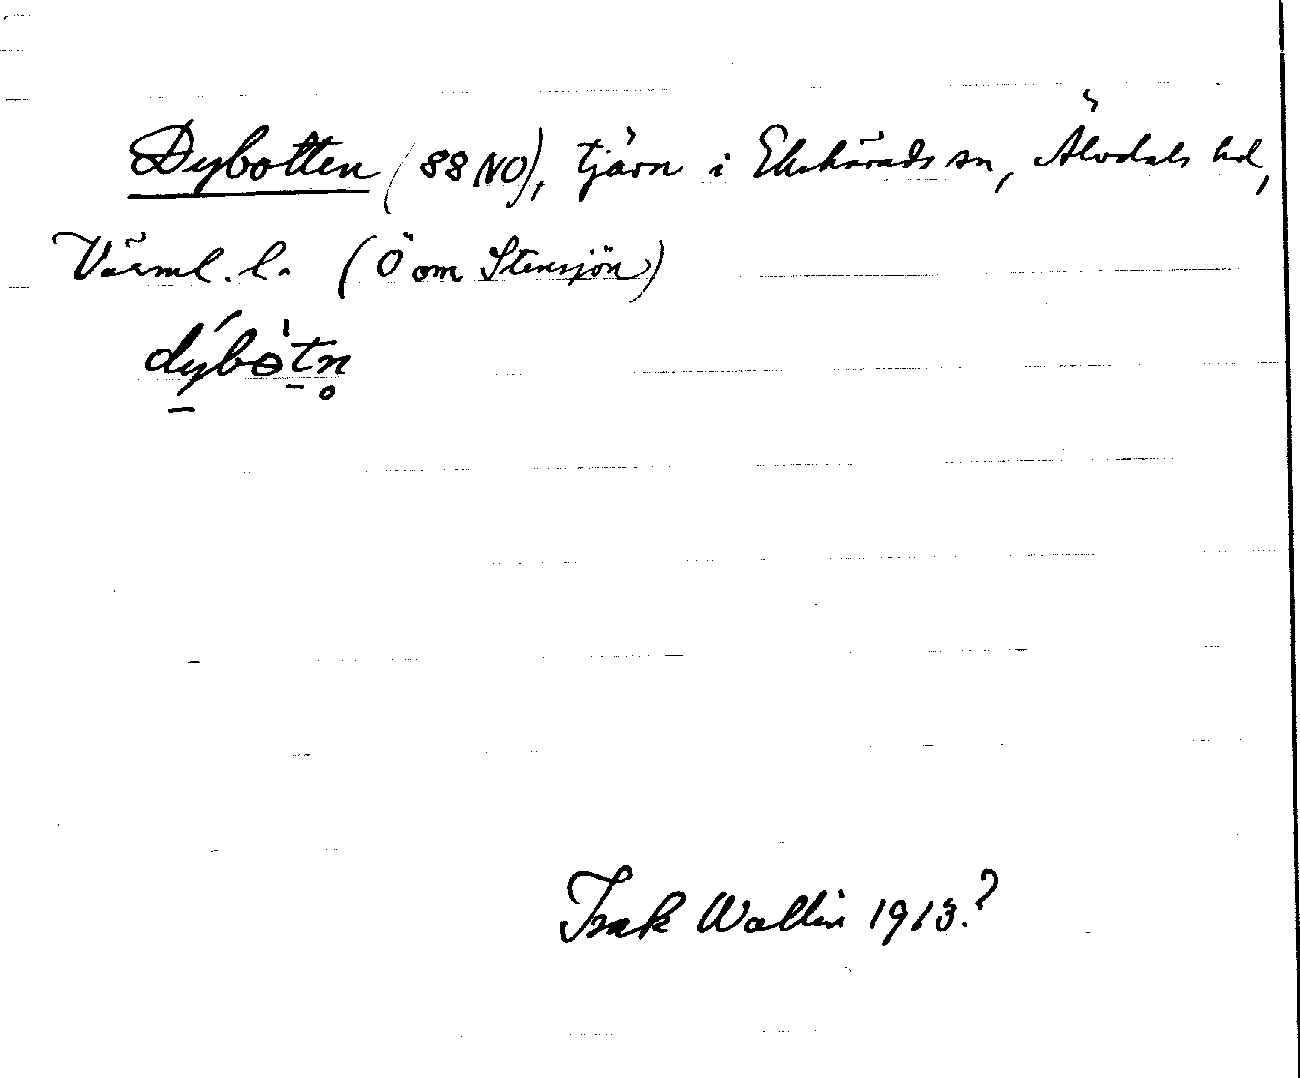 Dybotten (88 NO), tjärn i Ekshärads sn, Älvdals hd,
Värml. l. (Ö om Stensjön)
dýbòtn̥
Isak Wallin 1913.?